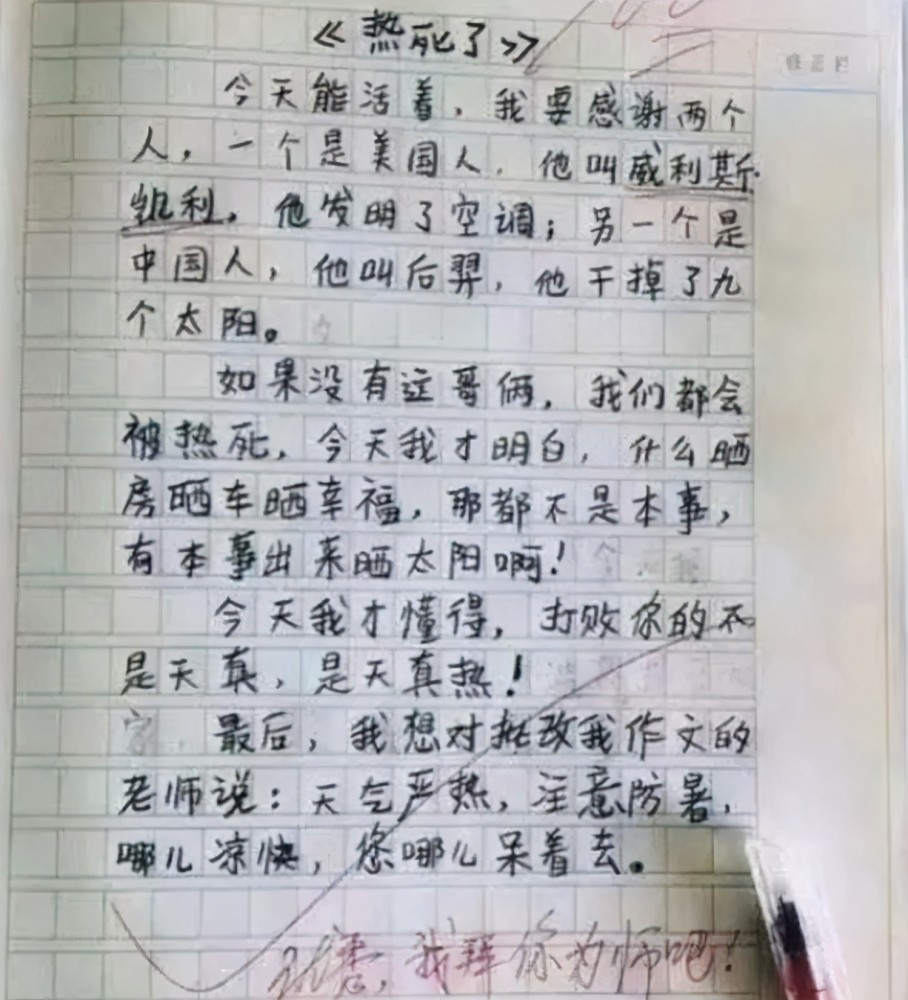 《热死了》
今天能活着，我要感谢两个
人，一个是美国人，他叫威利斯·
凯利，他发明了空调；另一个是
中国人，他叫后羿，他干掉了九
个太阳。
如果没有这哥俩，我们都会
被热死，今天我才明白，什么晒
房晒车晒幸福，那都不是本事，
有本事出来晒太阳啊！
今天我才懂得，打败你的不
是天真，是天真热！
最后，我想对批改我作文的
老师说：天气严热，注意防暑，
哪儿凉快，您哪儿呆着去。
我拜你为师吧！